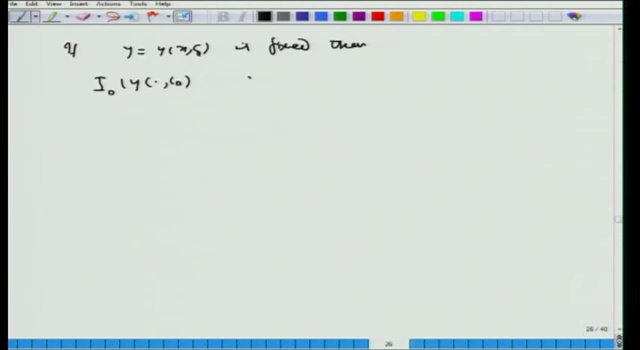 File Edit View Insert Actions Tools Help
If y = y(x,s) is fixed then
I₀(y(·,s))
26 / 40
26